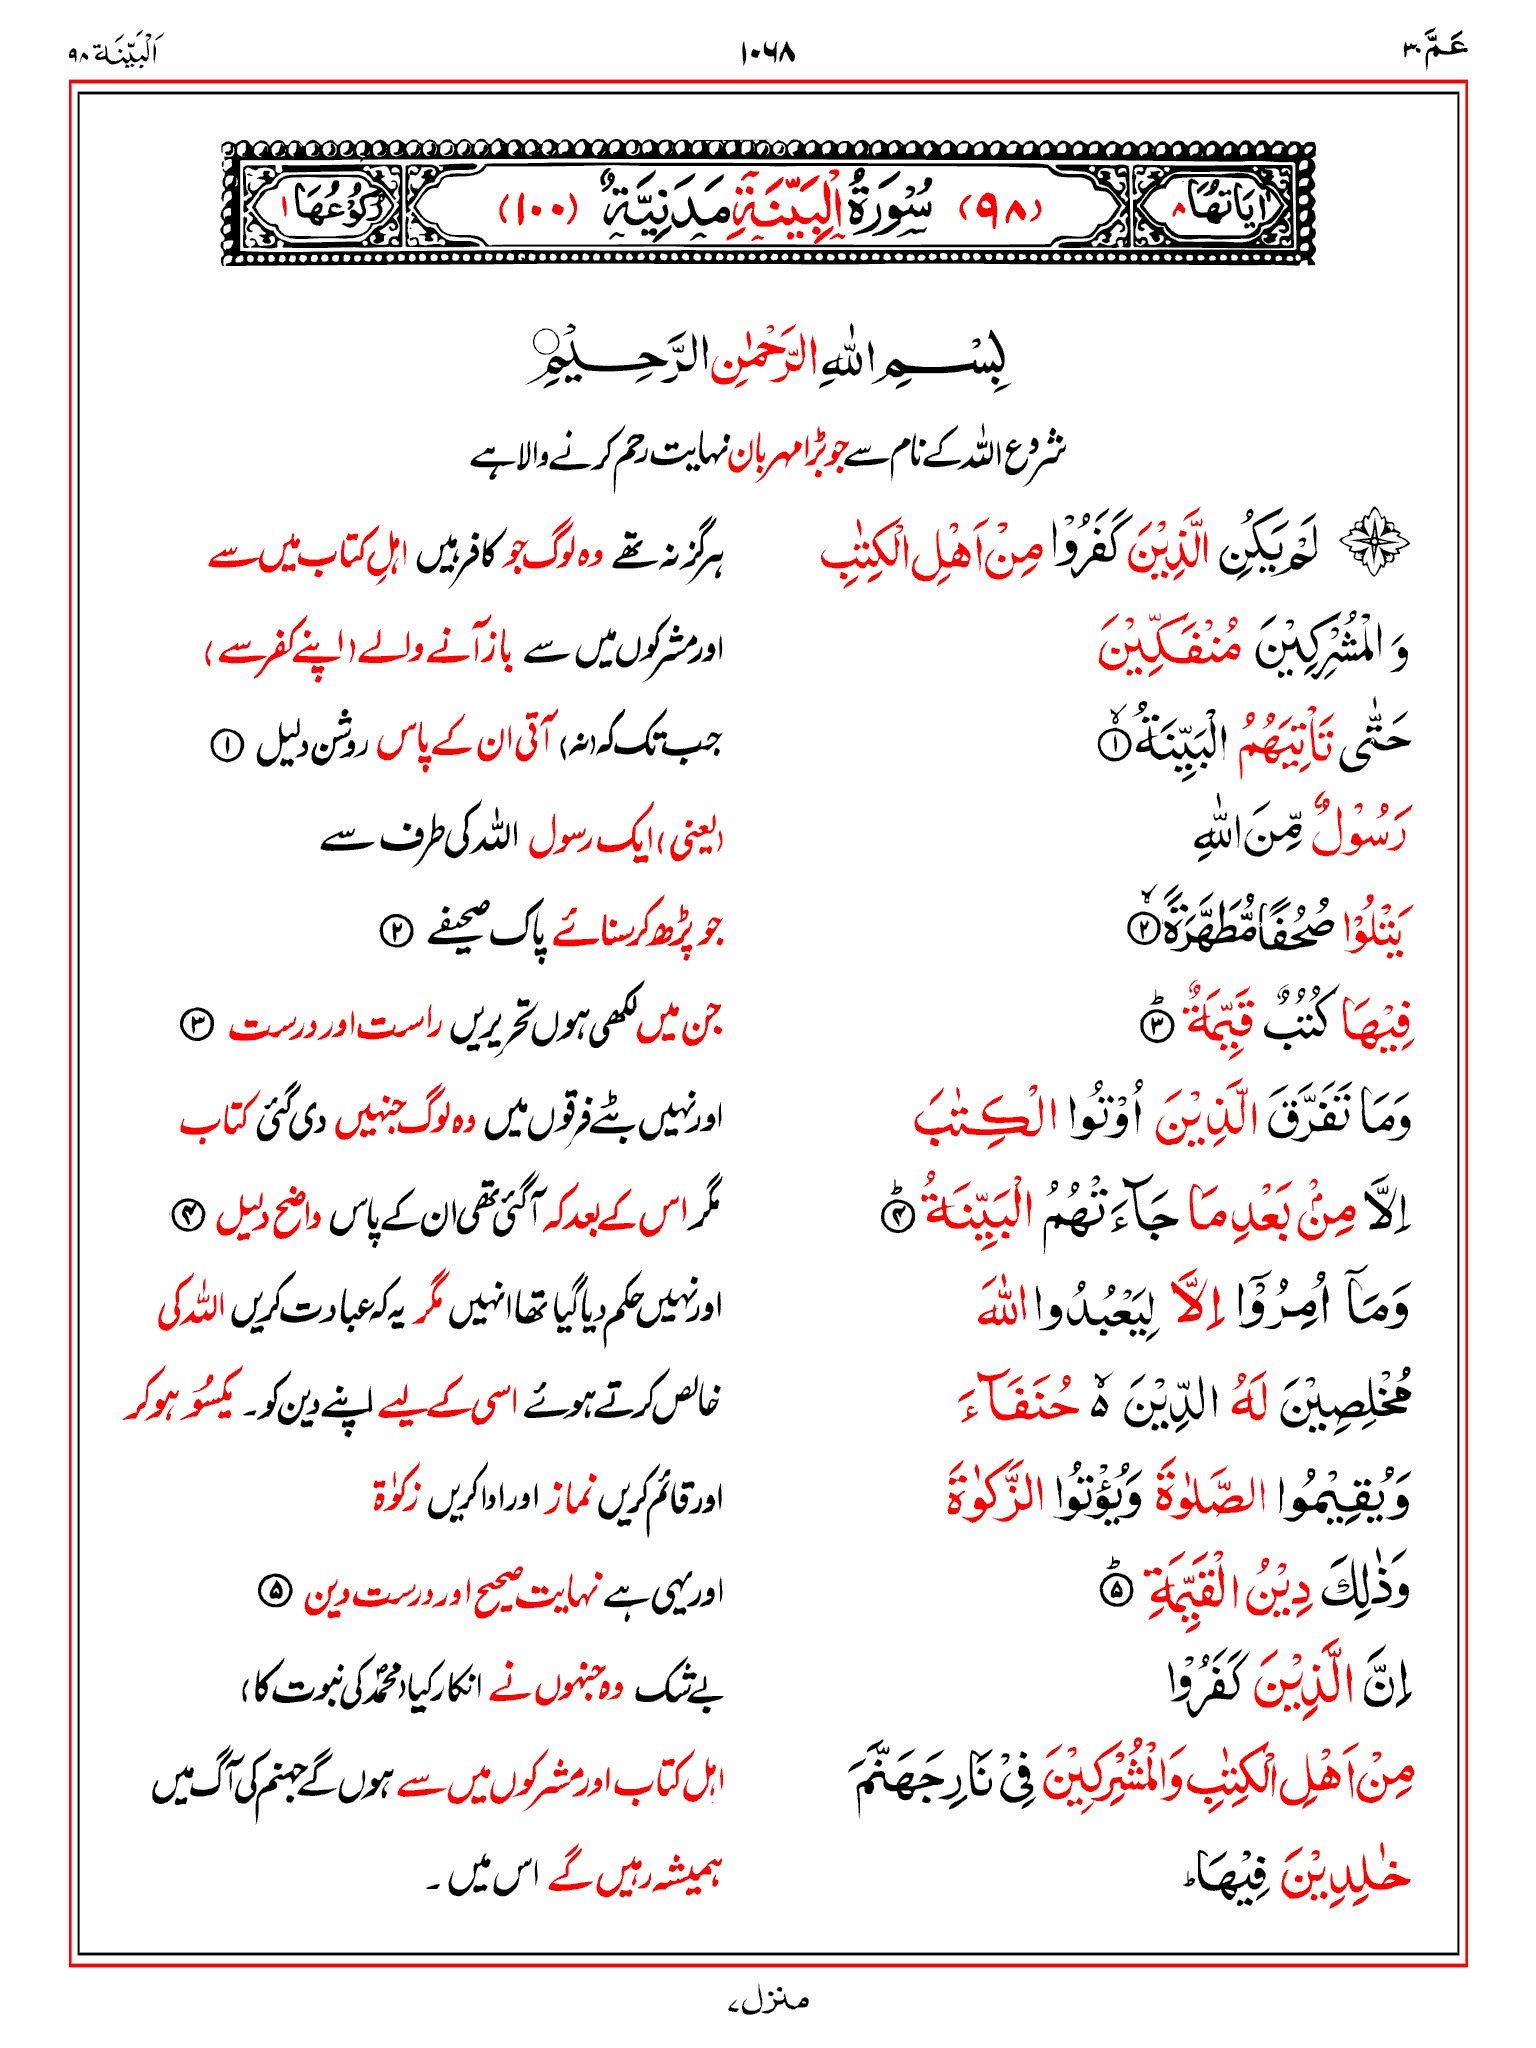 عَمَّ ۳۰
۱۰۶۸
اَلْبَيِّنَة ۹۸
اٰيَاتُهَا ۸
(۹۸) سُوْرَةُ الْبَيِّنَةِ مَدَنِيَّةٌ (۱۰۰)
رُكُوْعُهَا ۱
بِسْمِ اللّٰهِ الرَّحْمٰنِ الرَّحِيْمِ
شروع اللہ کے نام سے جو بڑا مہربان نہایت رحم کرنے والا ہے
لَمْ يَكُنِ الَّذِيْنَ كَفَرُوْا مِنْ اَهْلِ الْكِتٰبِ ہرگز نہ تھے وہ لوگ جو کافر ہیں اہلِ کتاب میں سے
وَالْمُشْرِكِيْنَ مُنْفَكِّيْنَ اور مشرکوں میں سے باز آنے والے (اپنے کفر سے)
حَتّٰى تَاْتِيَهُمُ الْبَيِّنَةُۙ ۱ جب تک کہ (نہ) آتی ان کے پاس روشن دلیل ۱
رَسُوْلٌ مِّنَ اللّٰهِ (یعنی) ایک رسول اللہ کی طرف سے
يَتْلُوْا صُحُفًا مُّطَهَّرَةًۙ ۲ جو پڑھ کر سنائے پاک صحیفے ۲
فِيْهَا كُتُبٌ قَيِّمَةٌؕ ۳ جن میں لکھی ہوں تحریریں راست اور درست ۳
وَمَا تَفَرَّقَ الَّذِيْنَ اُوْتُوا الْكِتٰبَ اور نہیں بٹے فرقوں میں وہ لوگ جنہیں دی گئی کتاب
اِلَّا مِنْۢ بَعْدِ مَا جَآءَتْهُمُ الْبَيِّنَةُؕ ۴ مگر اس کے بعد کہ آ گئی تھی ان کے پاس واضح دلیل ۴
وَمَاۤ اُمِرُوْۤا اِلَّا لِيَعْبُدُوا اللّٰهَ اور نہیں حکم دیا گیا تھا انہیں مگر یہ کہ عبادت کریں اللہ کی
مُخْلِصِيْنَ لَهُ الدِّيْنَ ۙ۬ حُنَفَآءَ خالص کرتے ہوئے اسی کے لیے اپنے دین کو۔ یکسُو ہو کر
وَيُقِيْمُوا الصَّلٰوةَ وَيُؤْتُوا الزَّكٰوةَ اور قائم کریں نماز اور ادا کریں زکوٰۃ
وَذٰلِكَ دِيْنُ الْقَيِّمَةِؕ ۵ اور یہی ہے نہایت صحیح اور درست دین ۵
اِنَّ الَّذِيْنَ كَفَرُوْا بے شک وہ جنہوں نے انکار کیا (محمدؐ کی نبوت کا)
مِنْ اَهْلِ الْكِتٰبِ وَالْمُشْرِكِيْنَ فِيْ نَارِ جَهَنَّمَ اہلِ کتاب اور مشرکوں میں سے ہوں گے جہنم کی آگ میں
خٰلِدِيْنَ فِيْهَاؕ ہمیشہ رہیں گے اس میں۔
منزل ۷